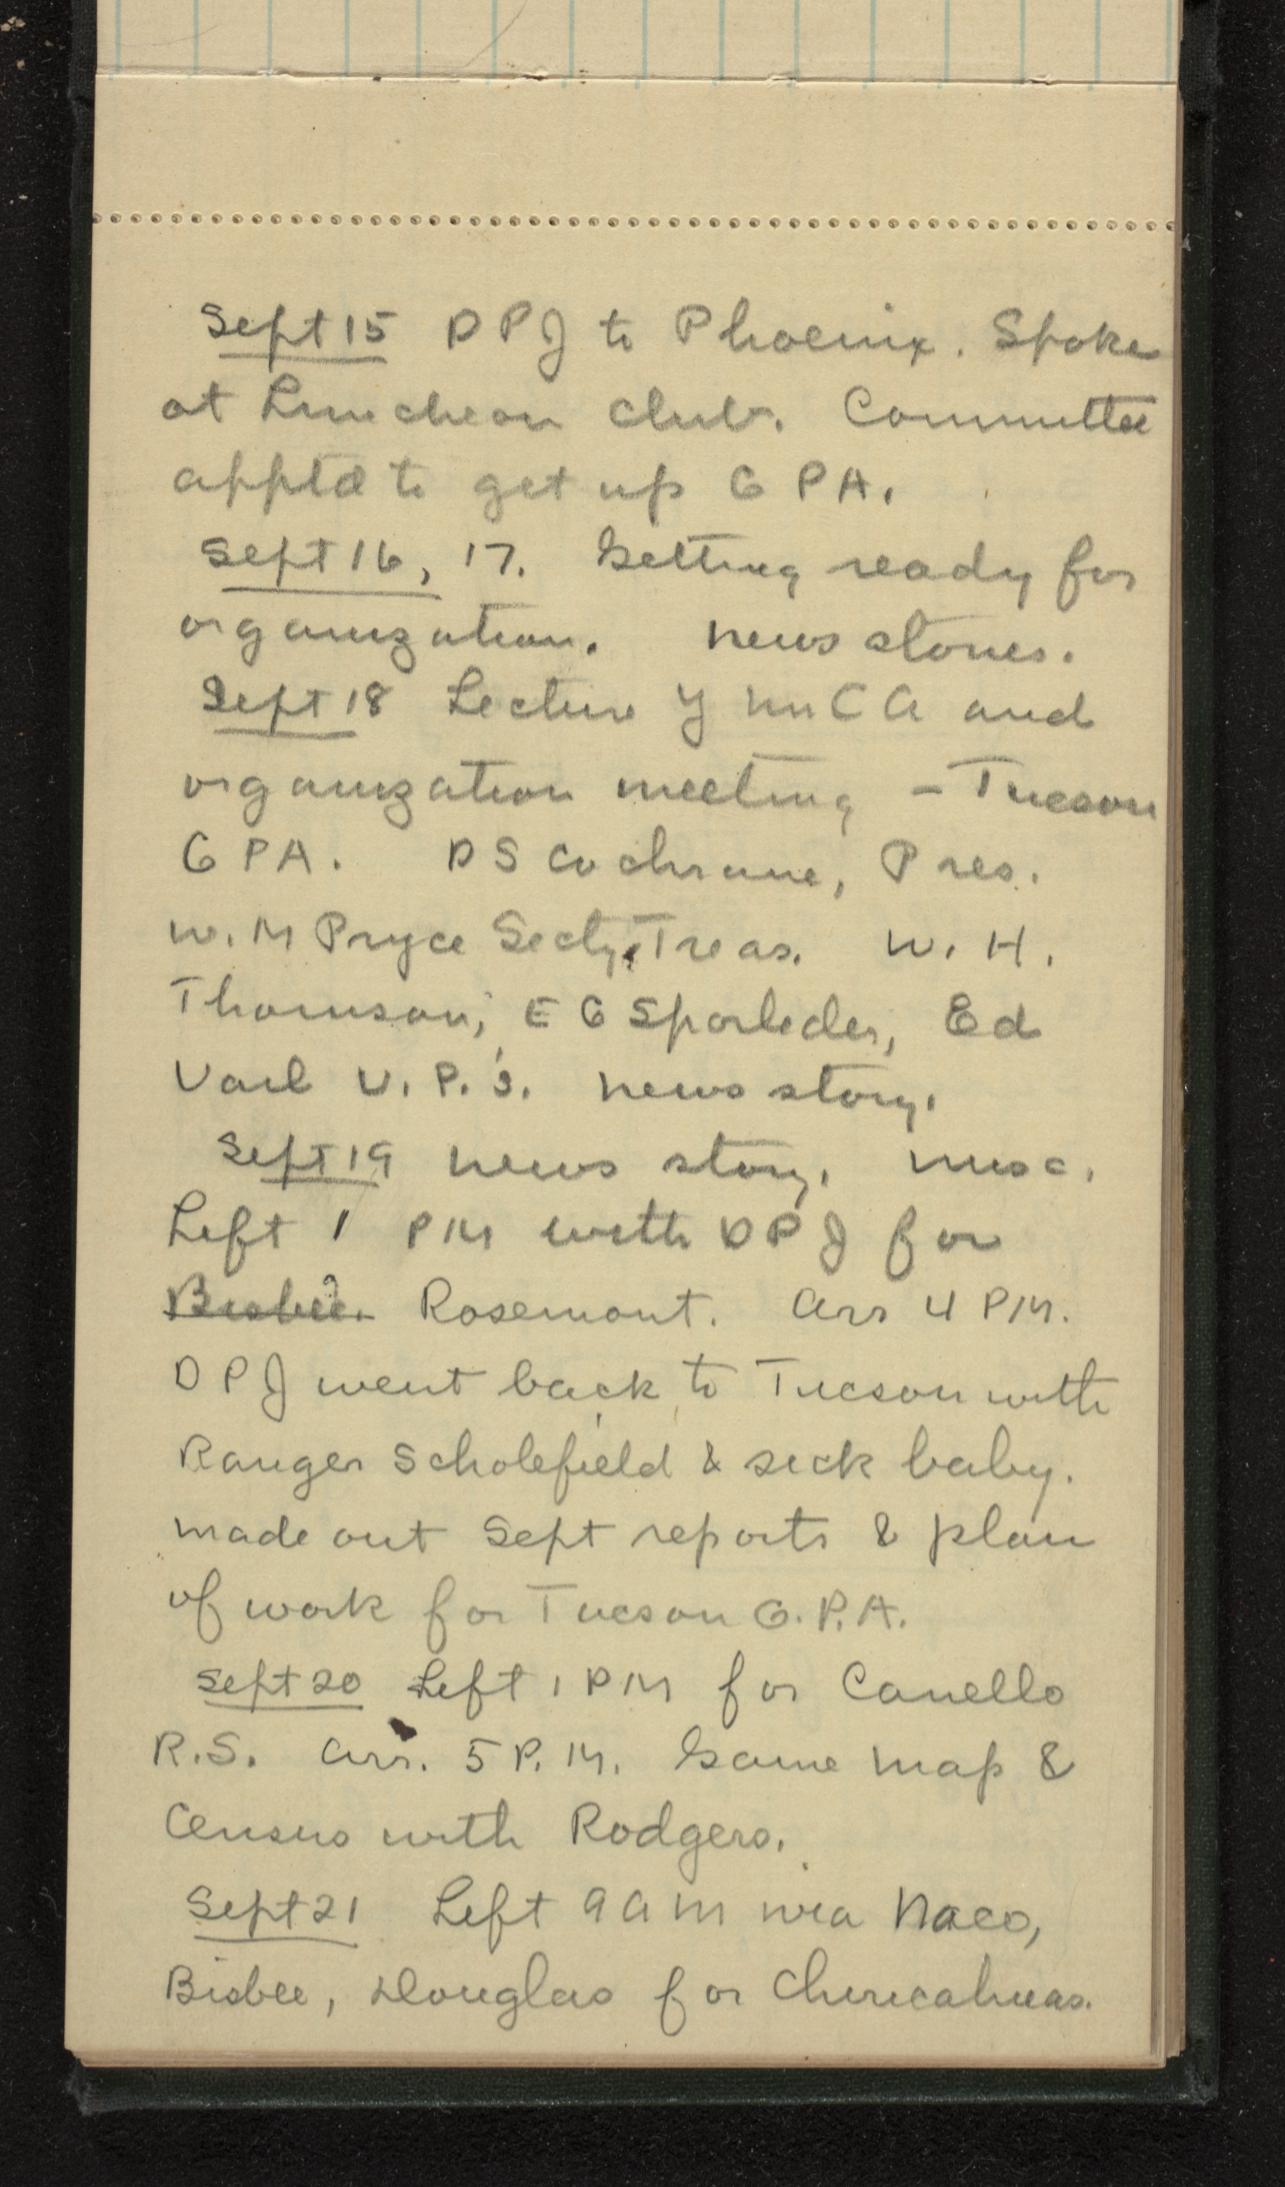 Sept 15 DPJ to Phoenix. Spoke
at Luncheon club. Committee
apptd to get up G PA.
Sept 16, 17. Getting ready for
organization. News stories.
Sept 18 Lecture YMCA and
organization meeting - Tucson
G PA. DS Cochrane, Pres.
W. M Pryce Secty. Treas. W. H.
Thomson, E G Sporleder, Ed
Vail V.P.'s. News story.
Sept 19 News story. Misc.
Left 1 PM with DPJ for
Bisbee. Rosemont. Arr 4 PM.
DPJ went back to Tucson with
Ranger Scholefield & sick baby.
Made out Sept reports & plan
of work for Tucson G.P.A.
Sept 20 Left 1 PM for Canello
R.S. Arr. 5 P.M. Game map &
Census with Rodgers.
Sept 21 Left 9 AM via Naco,
Bisbee, Douglas for Chiricahuas.